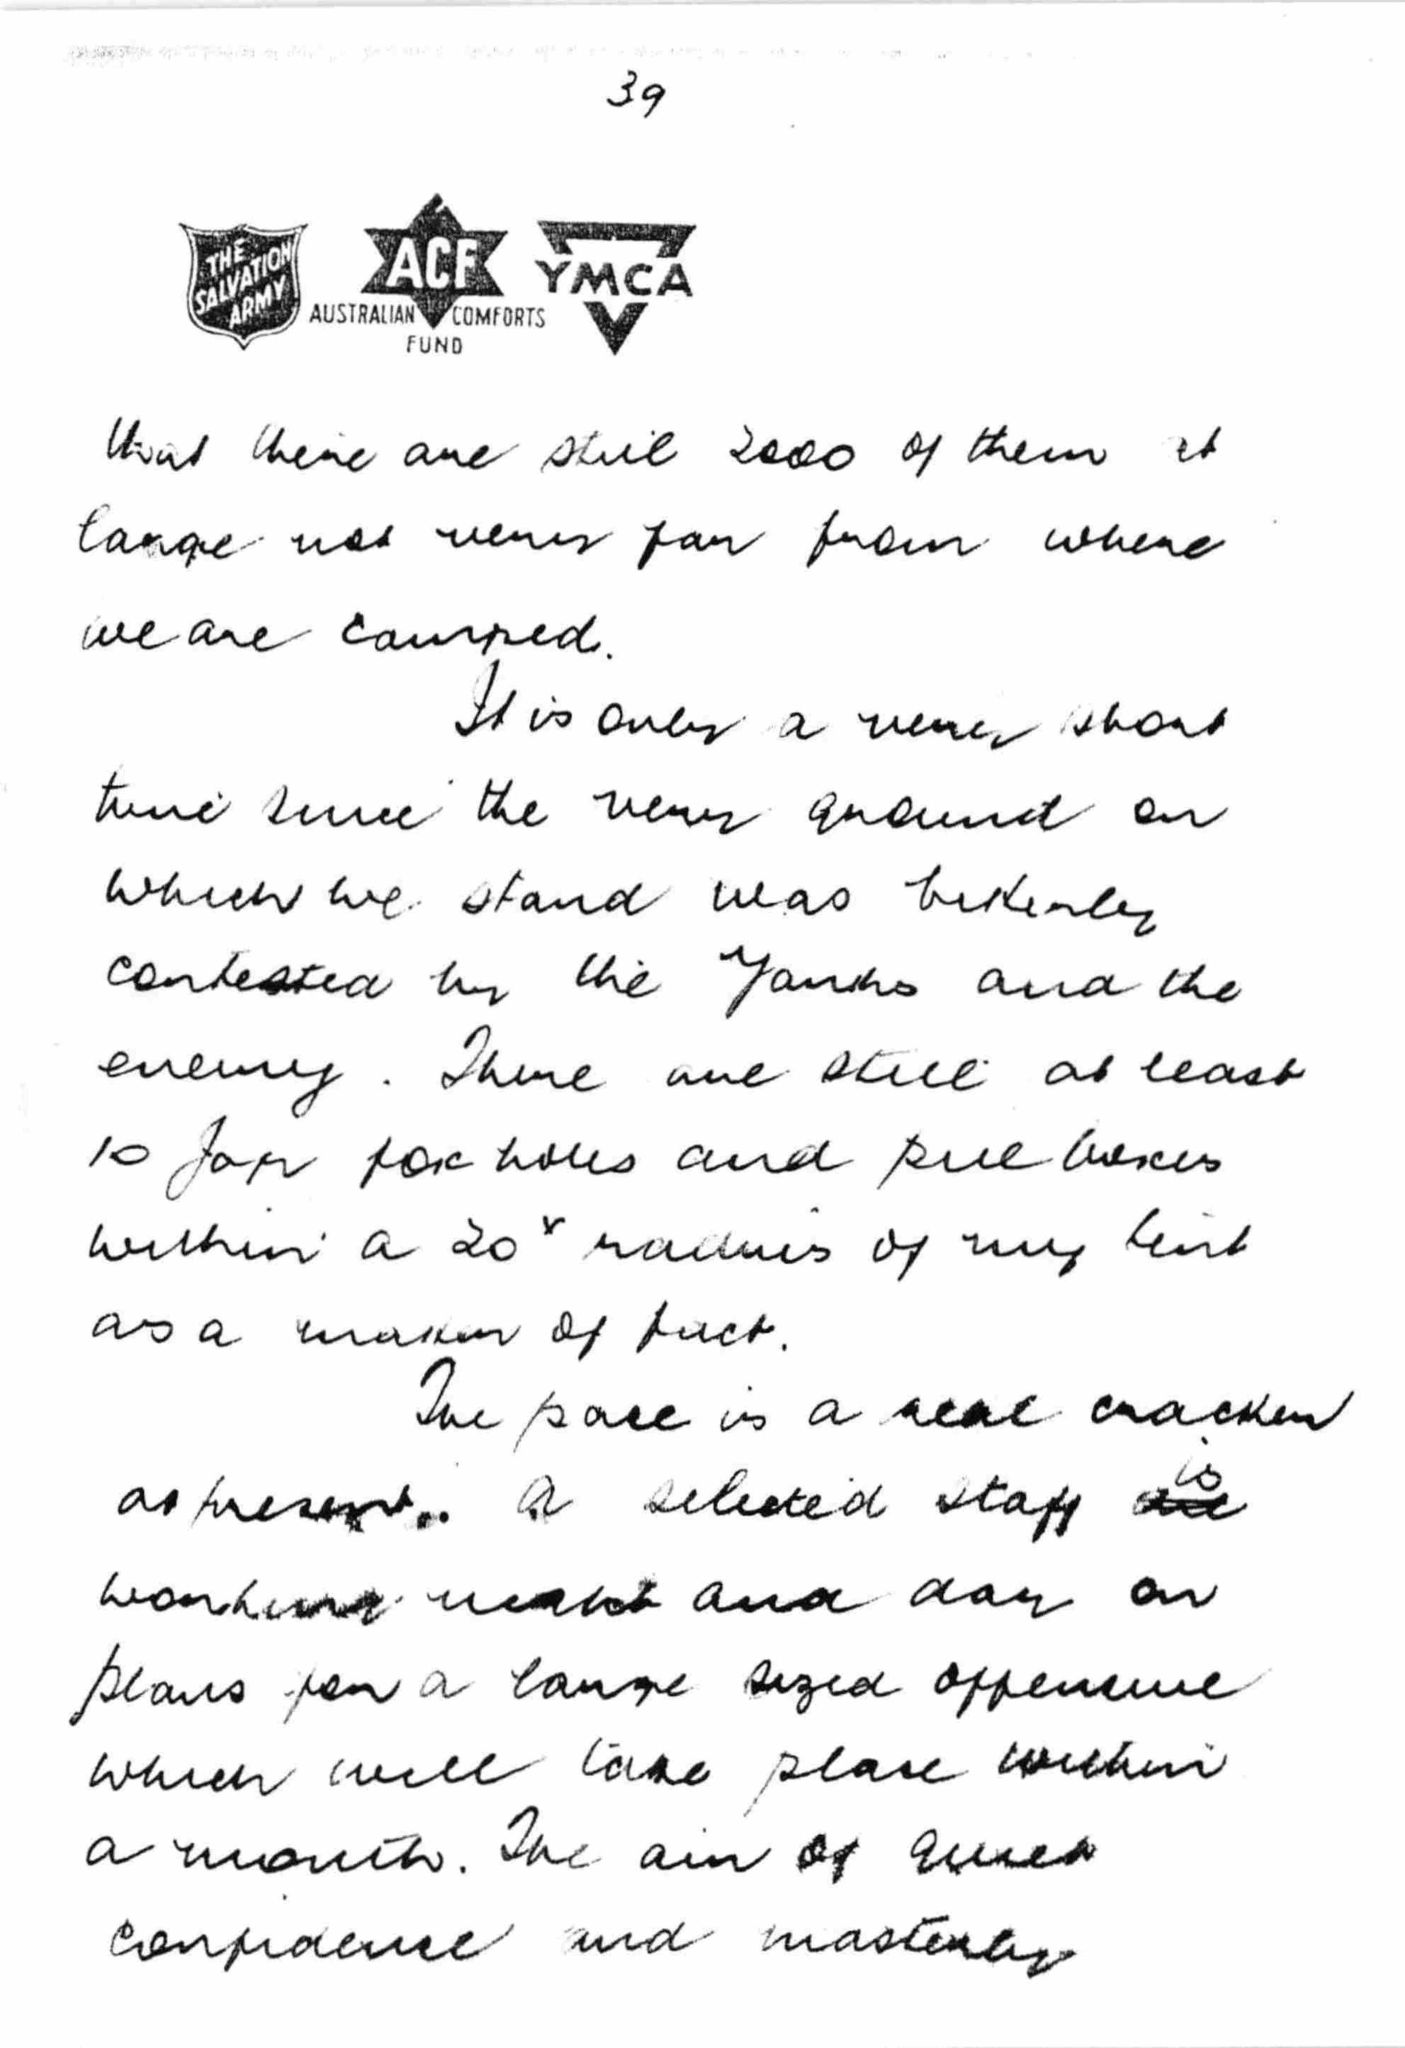 39
THE
SALVATION
ARMY
ACF
AUSTRALIAN COMFORTS
FUND
YMCA
that there are still 2000 of them at
large not very far from where
we are camped.
It is only a very short
time since the very ground on
which we stand was bitterly
contested by the Yanks and the
enemy. There are still at least
10 Jap fox holes and pill boxes
within a 20ˣ radius of my tent
as a matter of fact.
The pace is a real cracker
at present.. A selected staff are is
working night and day on
plans for a large sized offensive
which will take place within
a month. The air of quiet
confidence and masterly